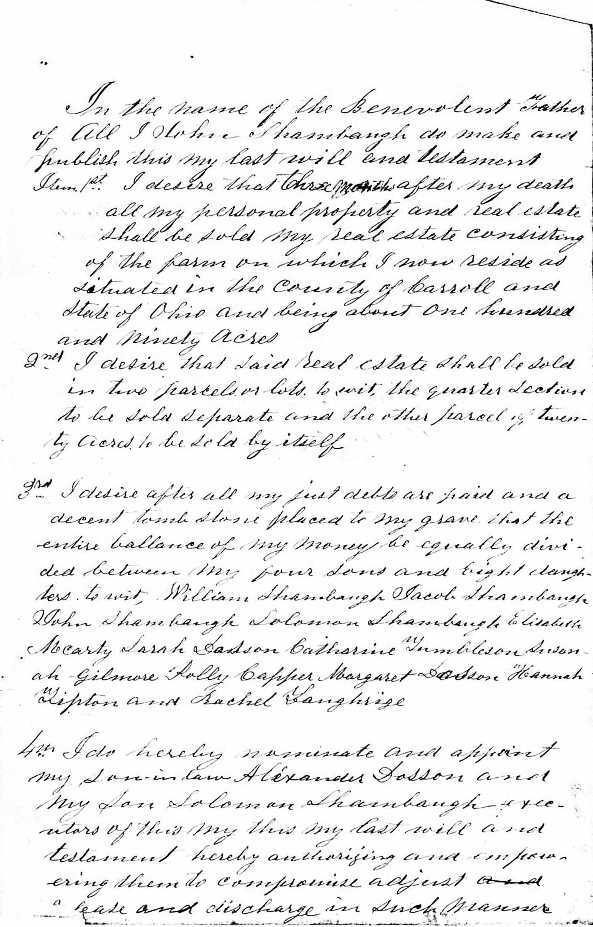 In the name of the Benevolent Father
of All I John Shambaugh do make and
publish this my last will and testament
Item 1st. I desire that three months after my death
all my personal property and real estate
shall be sold my real estate consisting
of the farm on which I now reside as
situated in the County of Carroll and
State of Ohio and being about One hundred
and Ninety Acres
2nd I desire that said real estate shall be sold
in two parcels or lots. to wit, the quarter Section
to be sold separate and the other parcel of twen-
ty Acres, to be sold by itself
3rd I desire after all my just debts are paid and a
decent tomb stone placed to my grave that the
entire ballance of my money be equally divi-
ded between my four sons and Eight daugh-
ters. to wit, William Shambaugh Jacob Shambaugh
John Shambaugh Solomon Shambaugh Elisabeth
Mcarty Sarah Dosson Catharine Tumbleson Susan-
ah Gilmore Polly Capper Margaret Dosson Hannah
Lipton and Rachel Laughrige
4th I do hereby nominate and appoint
my Son-in-law Alexander Dosson and
my Son Solomon Shambaugh exec-
utors of this my this my last will and
testament hereby authorizing and empow-
ering them to compromise adjust and
lease and discharge in such Manner